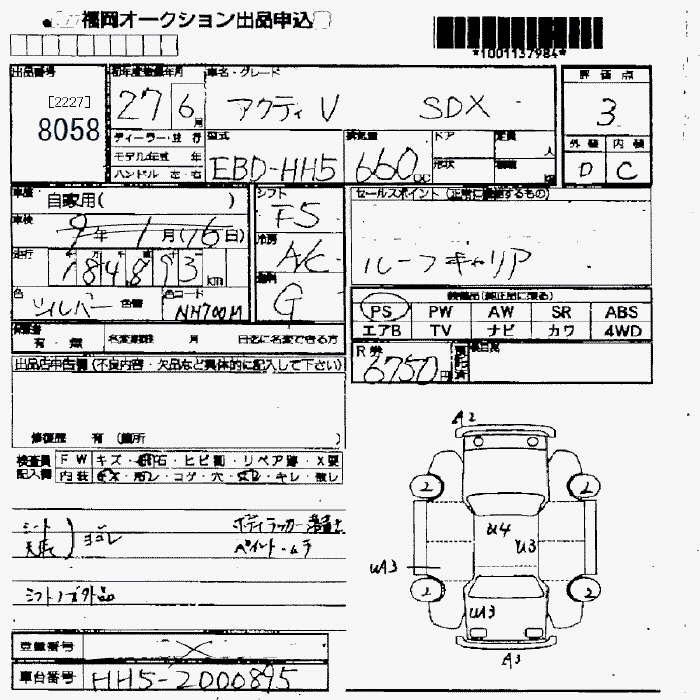 福岡オークション出品申込
*1001137984*
出品番号
[2227]
8058
初年度登録年月
27 6月
車名・グレード
アクティV SDX
評価点
3
外装 内装
D C
ディーラー・並行
モデル年式 年
ハンドル 左・右
型式
EBD-HH5
排気量
660 CC
ドア
形状
定員
人
車歴
自家用( )
車検
9年1月(16日)
走行
184893 km
色
シルバー 色替
色コード
NH700M
シフト
F5
冷房
A/C
燃料
G
セールスポイント (正常に機能するもの)
ルーフキャリア
装備品(純正品に限る)
PS PW AW SR ABS
エアB TV ナビ カワ 4WD
有・無 名変期限 月 日迄に名変できる方
R券
6750円
出品店申告欄 (不良内容・欠品など具体的に記入して下さい)
修復歴 有 (箇所 )
検査員記入欄
FW キズ・飛石・ヒビ割・リペア跡・X要
内装 キズ・汚レ・コゲ・穴・キレ・無し
シート
天張
ヨゴレ
ボディラッカー塗装
ペイント・ムラ
シフトノブ外品
A2
2 2
U4
U3
UA3
2 2
UA3
A3
登録番号
車台番号
HH5-2000895